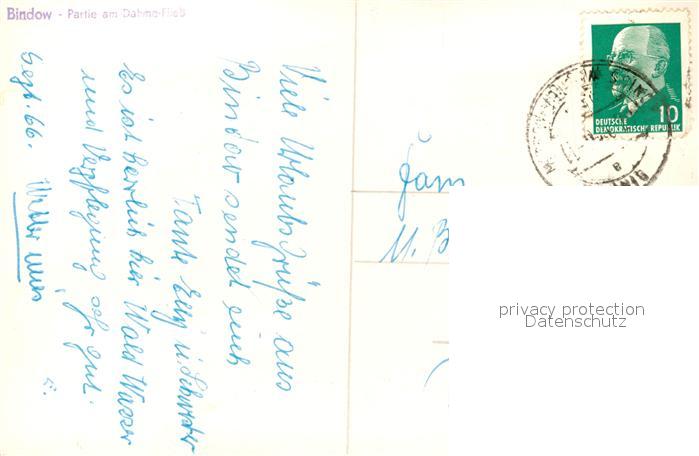 Bindow - Partie am Dahme-Fließ
Viele Urlaubsgrüße aus
Bindow sendet euch
Tante Elly u. Schwester
Es ist herrlich hier Wald Wasser
und Verpflegung sehr gut.
Sept. 66.
Fam
U. B
DEUTSCHE
DEMOKRATISCHE REPUBLIK
10
privacy protection
Datenschutz